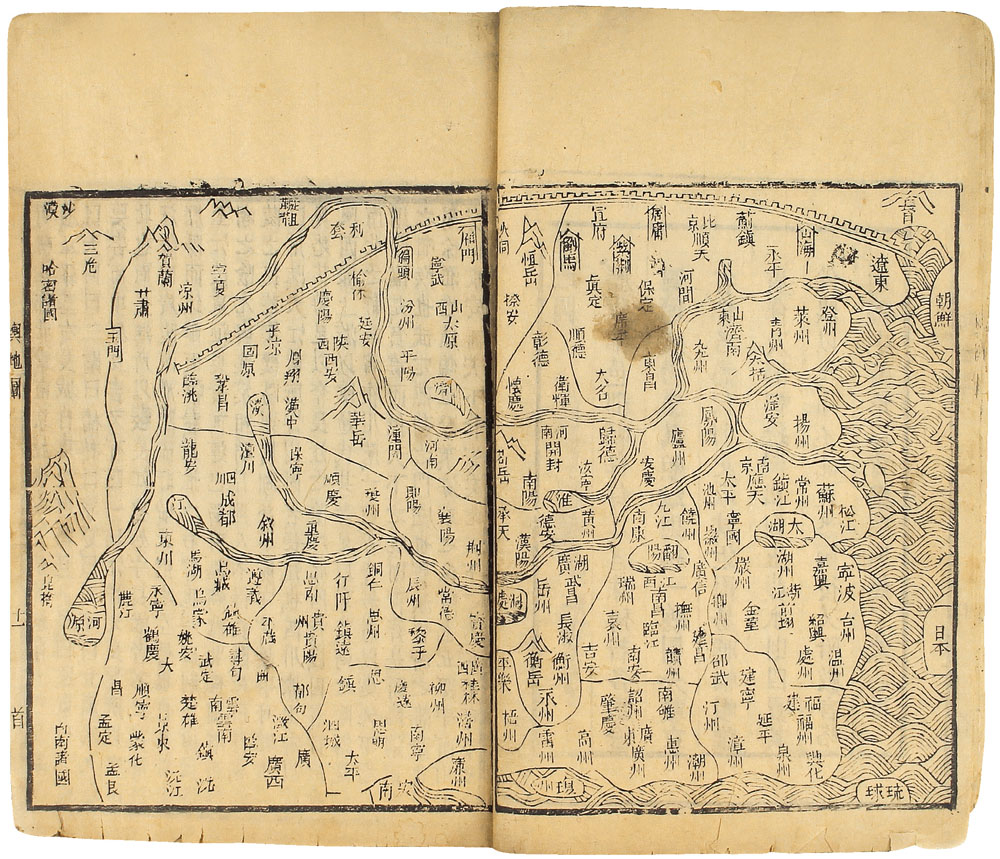 朝鮮
遼東
山海
薊鎮
永平
北京順天
居庸
宣府
河間
保定
真定
登州
萊州
青州
山東濟南
兗州
東昌
順德
彰德
衛輝
懷慶
恒岳
淮安
揚州
鳳陽
廬州
歸德
河南開封
南陽
安慶
池州
太平
南京應天
鎮江
常州
蘇州
松江
太湖
寧國
徽州
饒州
九江
南康
黃州
淮
德安
漢陽
承天
湖廣武昌
岳州
長沙
日本
寧波
嘉興
湖州
浙江
紹興
台州
溫州
處州
金華
嚴州
廣信
江西南昌
瑞州
撫州
建昌
臨江
吉安
南安
贛州
衡岳
衡州
永州
平樂
梧州
邵武
建寧
延平
汀州
漳州
泉州
福建福州
興化
南雄
韶州
肇慶
廣東廣州
惠州
潮州
高州
雷州
瓊州
琉球
雁門
寧武
山西太原
偏頭
汾州
平陽
榆林
延安
慶陽
陝西西安
華岳
潼關
河南
寧夏
賀蘭
涼州
甘肅
玉門
三危
沙漠
哈密諸國
固原
平涼
鳳翔
漢中
鞏昌
臨洮
漢
龍安
四川成都
保寧
順慶
夔州
重慶
敘州
鄖陽
襄陽
荊州
江
東川
馬湖
烏蒙
遵義
思南
銅仁
思州
鎮遠
貴州貴陽
辰州
常德
寶慶
黎平
廣西桂林
柳州
慶遠
潯州
南寧
思明
太平
廉州
安南
泗城
鎮
河源
永寧
鶴慶
姚安
武定
大
楚雄
雲南雲南
順寧
蒙化
孟定
孟艮
臨安
澂江
廣西
鎮沅
西南諸國
輿地圖
十一
首